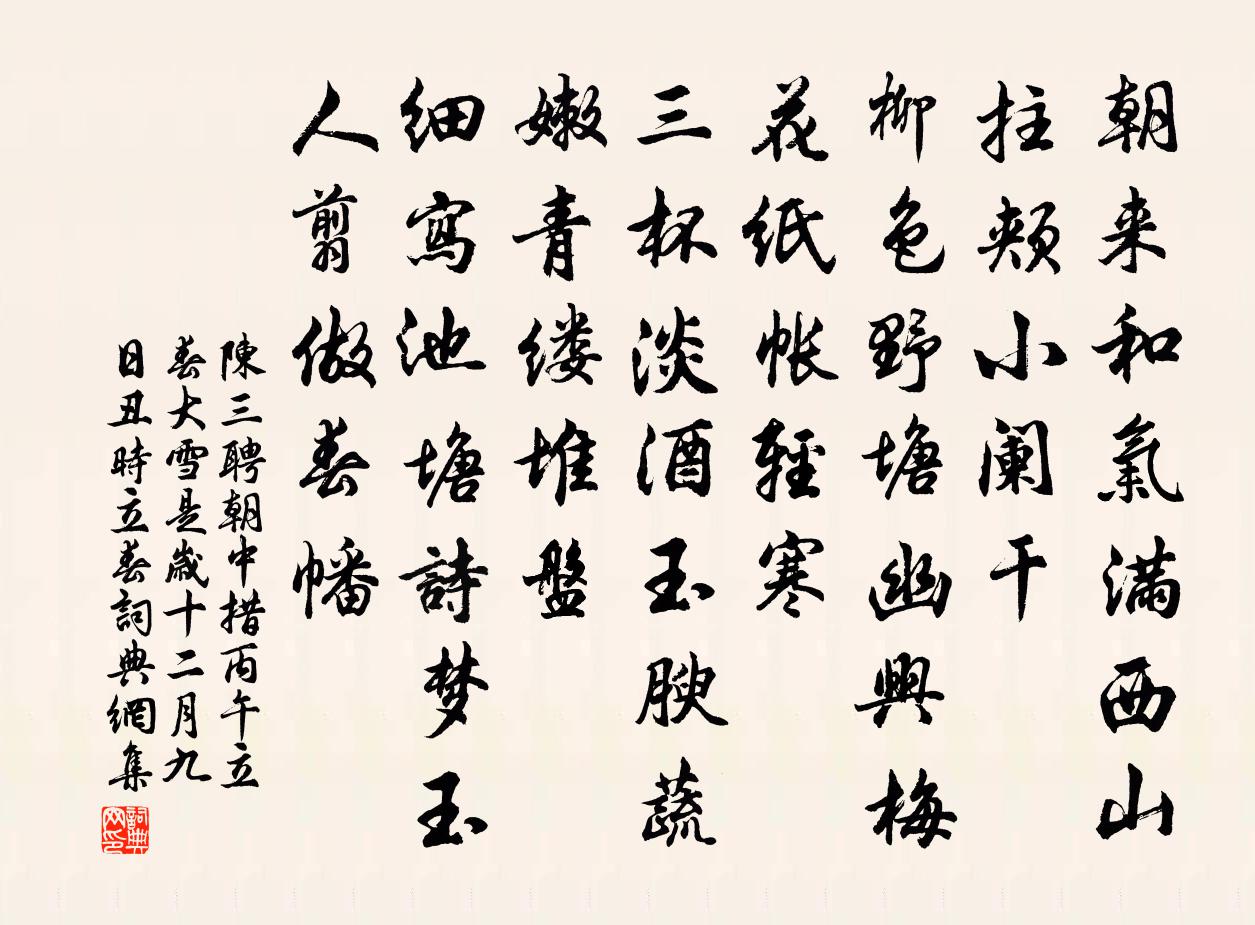 朝来和氣満西山
拄頰小阑干
柳色野塘幽興梅
花紙帐輕寒
三杯淡酒玉腴蔬
嫩青缕堆盤
细寫池塘詩梦玉
人翦做春幡
陳三聘朝中措丙午立
春大雪是歲十二月九
日丑時立春詞典網集
詞典网印